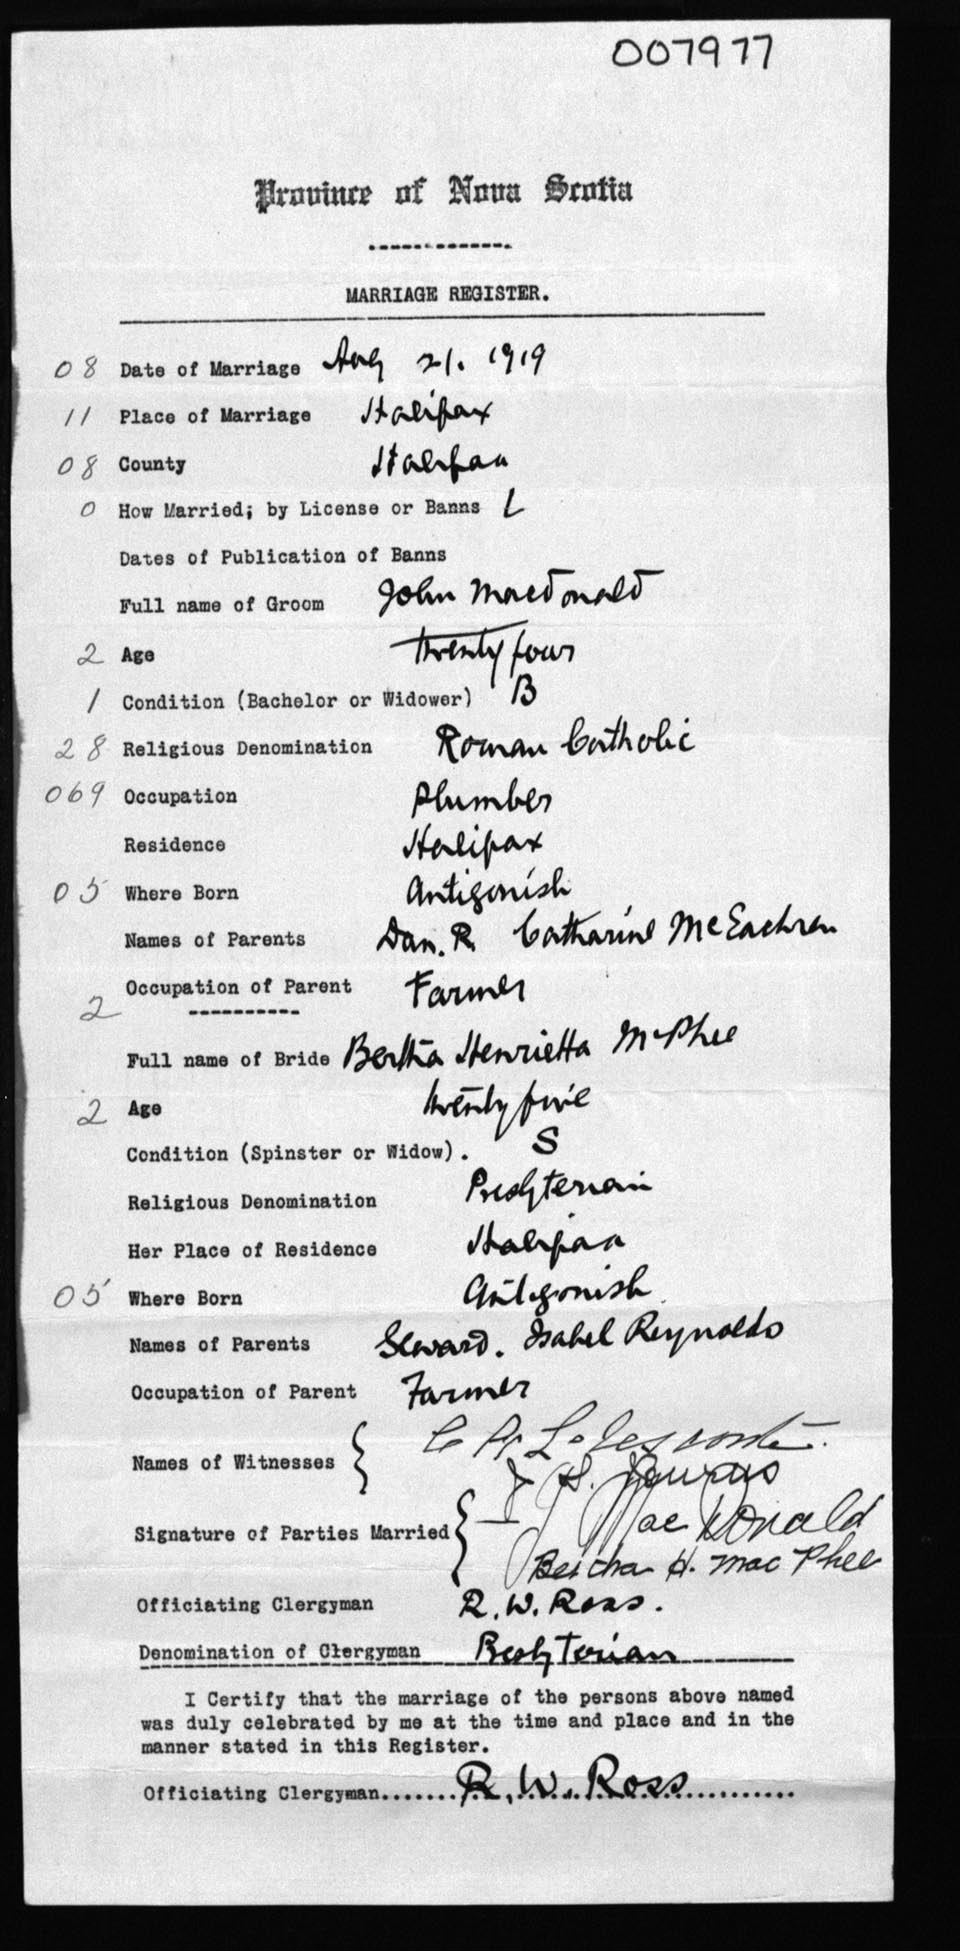 007977
Province of Nova Scotia
MARRIAGE REGISTER.
08 Date of Marriage Aug 21. 1919
11 Place of Marriage Halifax
08 County Halifax
0 How Married; by License or Banns L
Dates of Publication of Banns
Full name of Groom John MacDonald
2 Age twenty four
1 Condition (Bachelor or Widower) B
28 Religious Denomination Roman Catholic
069 Occupation Plumber
Residence Halifax
05 Where Born Antigonish
Names of Parents Dan. R. Catharine McEachren
Occupation of Parent Farmer
2
Full name of Bride Bertha Henrietta McPhee
2 Age twenty five
Condition (Spinster or Widow). S
Religious Denomination Presbyterian
Her Place of Residence Halifax
05 Where Born Antigonish
Names of Parents Seward. Isabel Reynolds
Occupation of Parent Farmer
Names of Witnesses
Signature of Parties Married J MacDonald
Bertha H. MacPhee
Officiating Clergyman R. W. Ross.
Denomination of Clergyman Presbyterian
I Certify that the marriage of the persons above named
was duly celebrated by me at the time and place and in the
manner stated in this Register.
Officiating Clergyman R. W. Ross